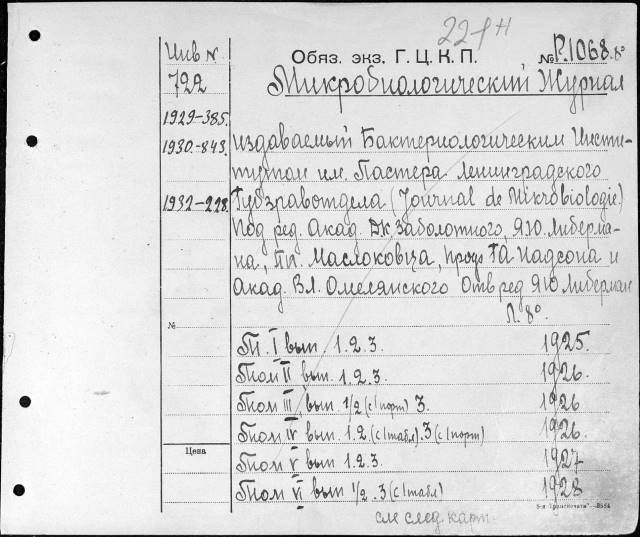 22-1 н
Инв N
722
1929-385.
1930.-843.
1932-228.
Обяз. экз. Г. Ц. К. П.
№ P.1068.8°
Микробиологический Журнал
издаваемый Бактериологическим Инсти-
тутом им. Пастера Ленинградского
Губздравотдела (Journal de Mikrobiologie)
Под ред. Акад. Дк Заболотного, Я.Ю. Либерма-
на, Пп. Маслоковца, проф ГА Надсона и
Акад. Вл. Омелянского Отв ред Я Ю Либерман
Л. 8°
№
Т. I вып. 1.2.3. 1925.
Том II вып. 1.2.3. 1926.
Том III вып. 1/2 (с 1 порт) 3. 1926
Том IV вып. 1.2 (с 1 табл). 3 (с 1 порт) 1926.
Цена
Том V вып 1.2.3. 1927
Том VI вып 1/2 . 3 (с 1 табл) 1928
см след. карт.